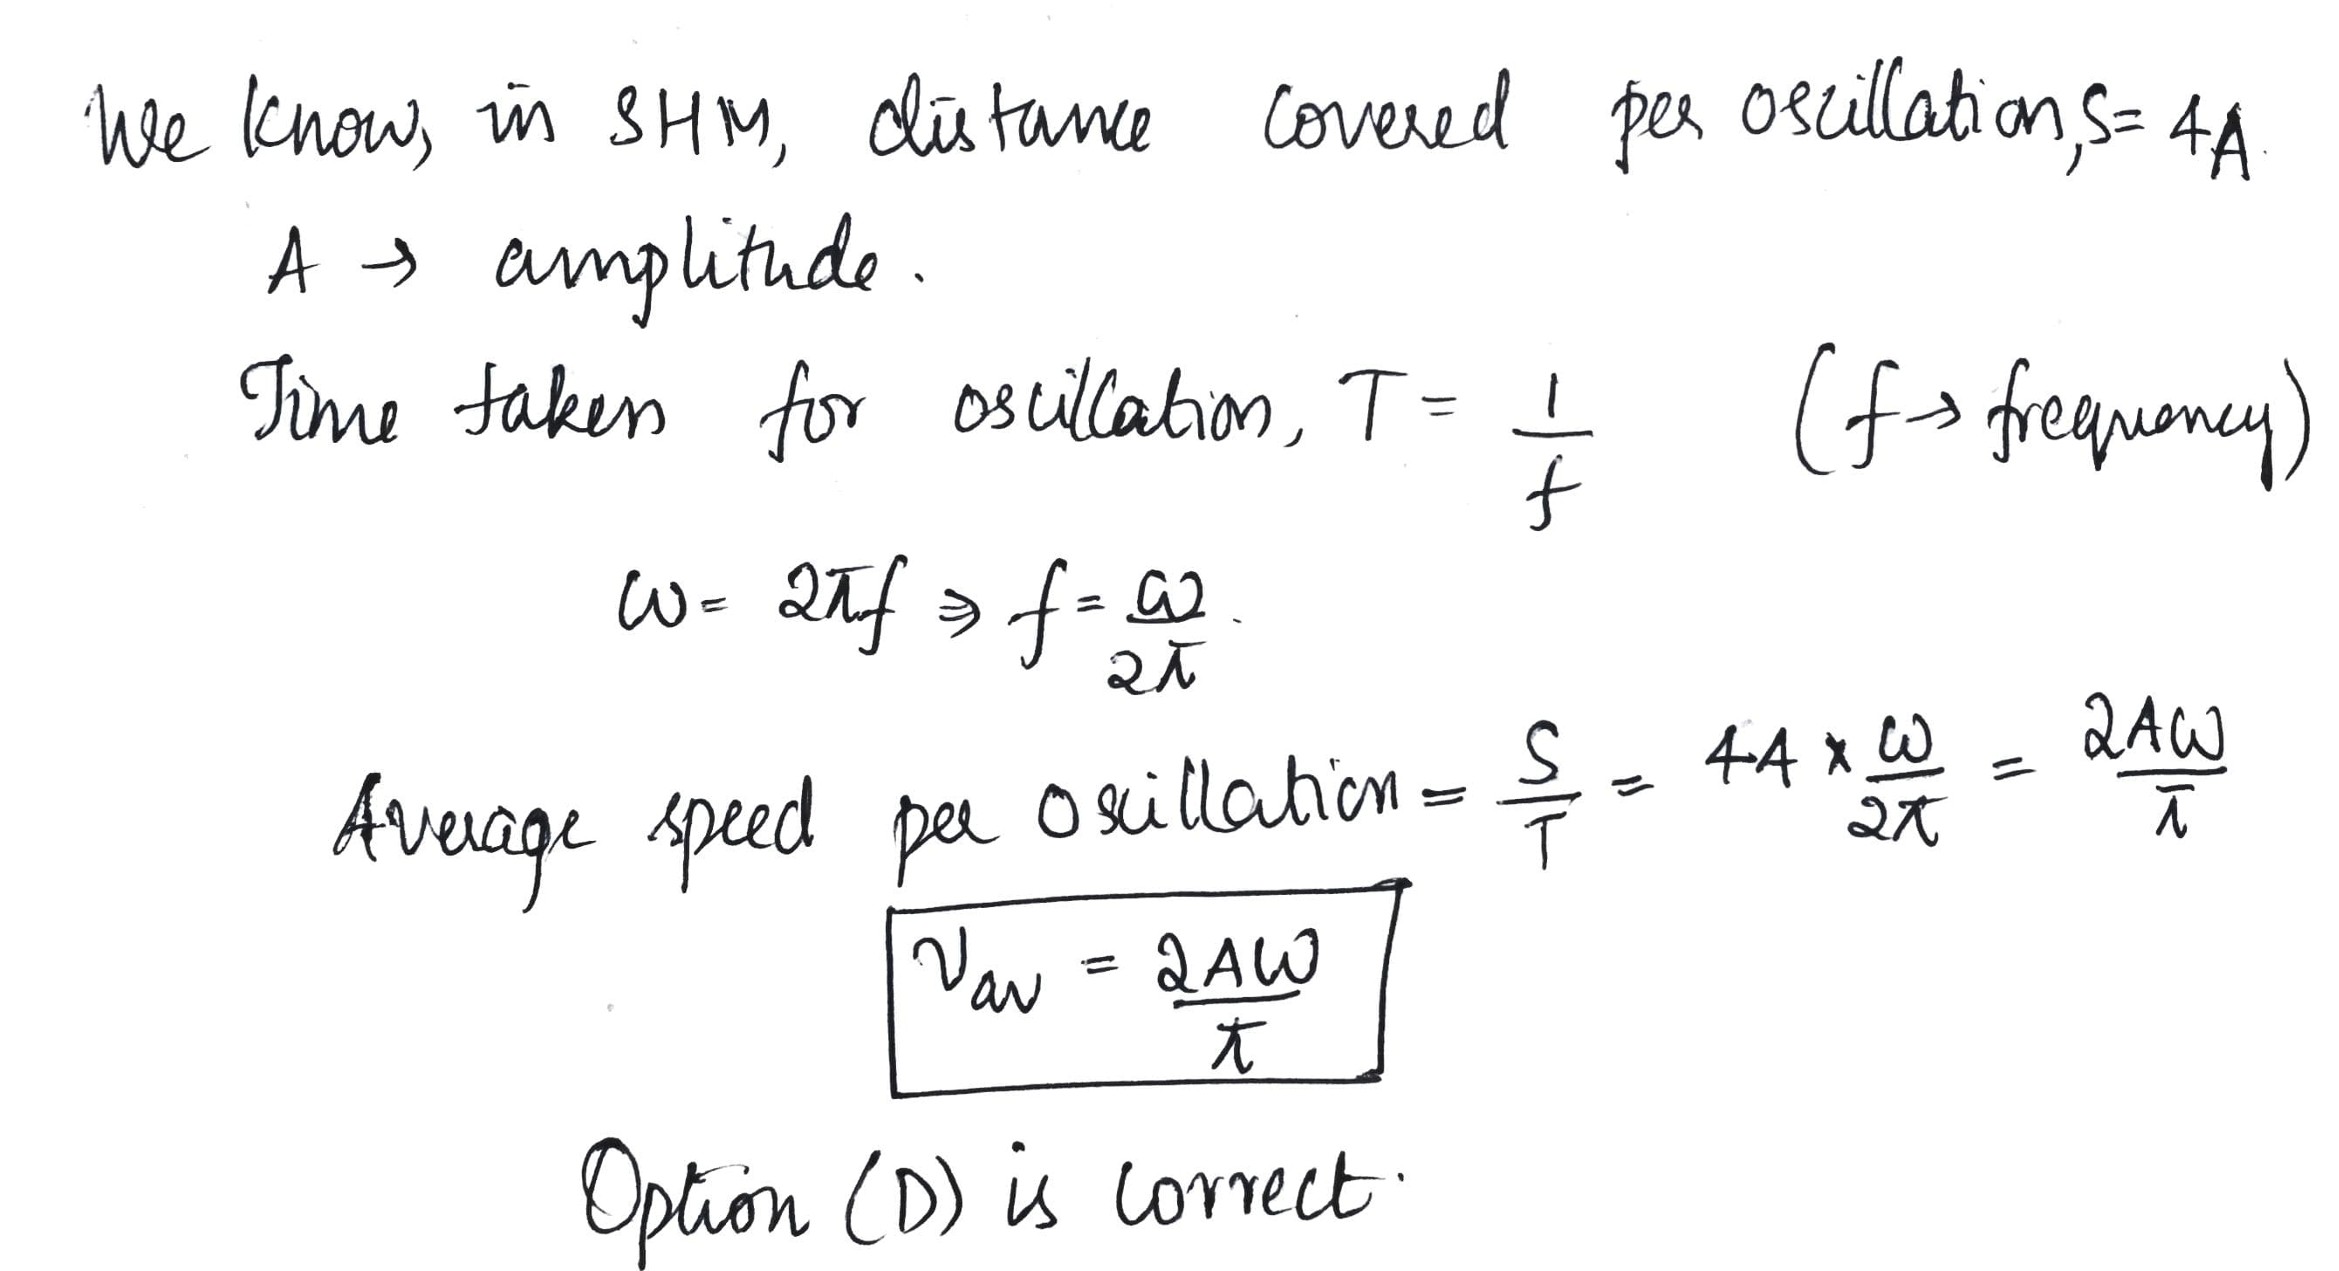 We know, in SHM, distance covered per oscillation, S = 4A.
A → amplitude.
Time taken for oscillation, T = 1/f (f → frequency)
ω = 2πf ⇒ f = ω/2π.
Average speed per oscillation = S/T = 4A × ω/2π = 2Aω/π
Vav = 2Aω/π
Option (D) is correct.